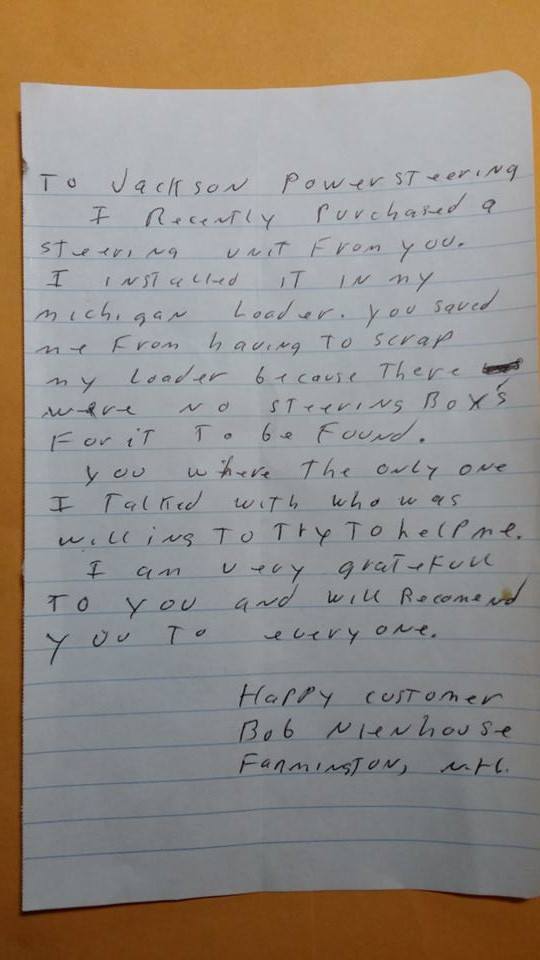 To Jackson Powersteering
I Recently Purchased a
steering unit From you.
I installed it in my
michigan Loader. you saved
me From having to scrap
my Loader because There
were no steering Box's
For it To be Found.
you where The only one
I Talked with who was
willing To Try To help me.
I am very gratefull
To you and will Recomend
you To everyone.
Happy customer
Bob Nienhouse
Farmington, N.H.